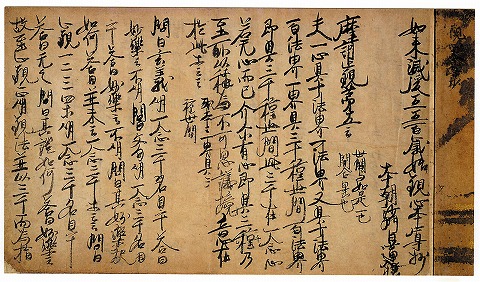 如来滅後五五百歳始観心本尊抄
本朝沙門日蓮撰
摩訶止観第五云
世間与如是一也
開合異也
夫一心具十法界一法界又具十法界
百法界一界具三十種世間百法界
即具三千種世間此三千在一念心
若無心而已介爾有心即具三千乃
至所以称為不可思議境意在
於此等云云
或本云一界具三
種世間
問曰玄義明一念三千名目乎答曰
妙楽云不明問曰文句明一念三千名目
乎答曰妙楽云不明問曰其妙楽釈
如何答曰並未云一念三千等云云問曰
止観一二三四等明一念三千名目乎
答曰無之問曰其証如何答曰妙楽云
故至止観正明観法並以三千而為指